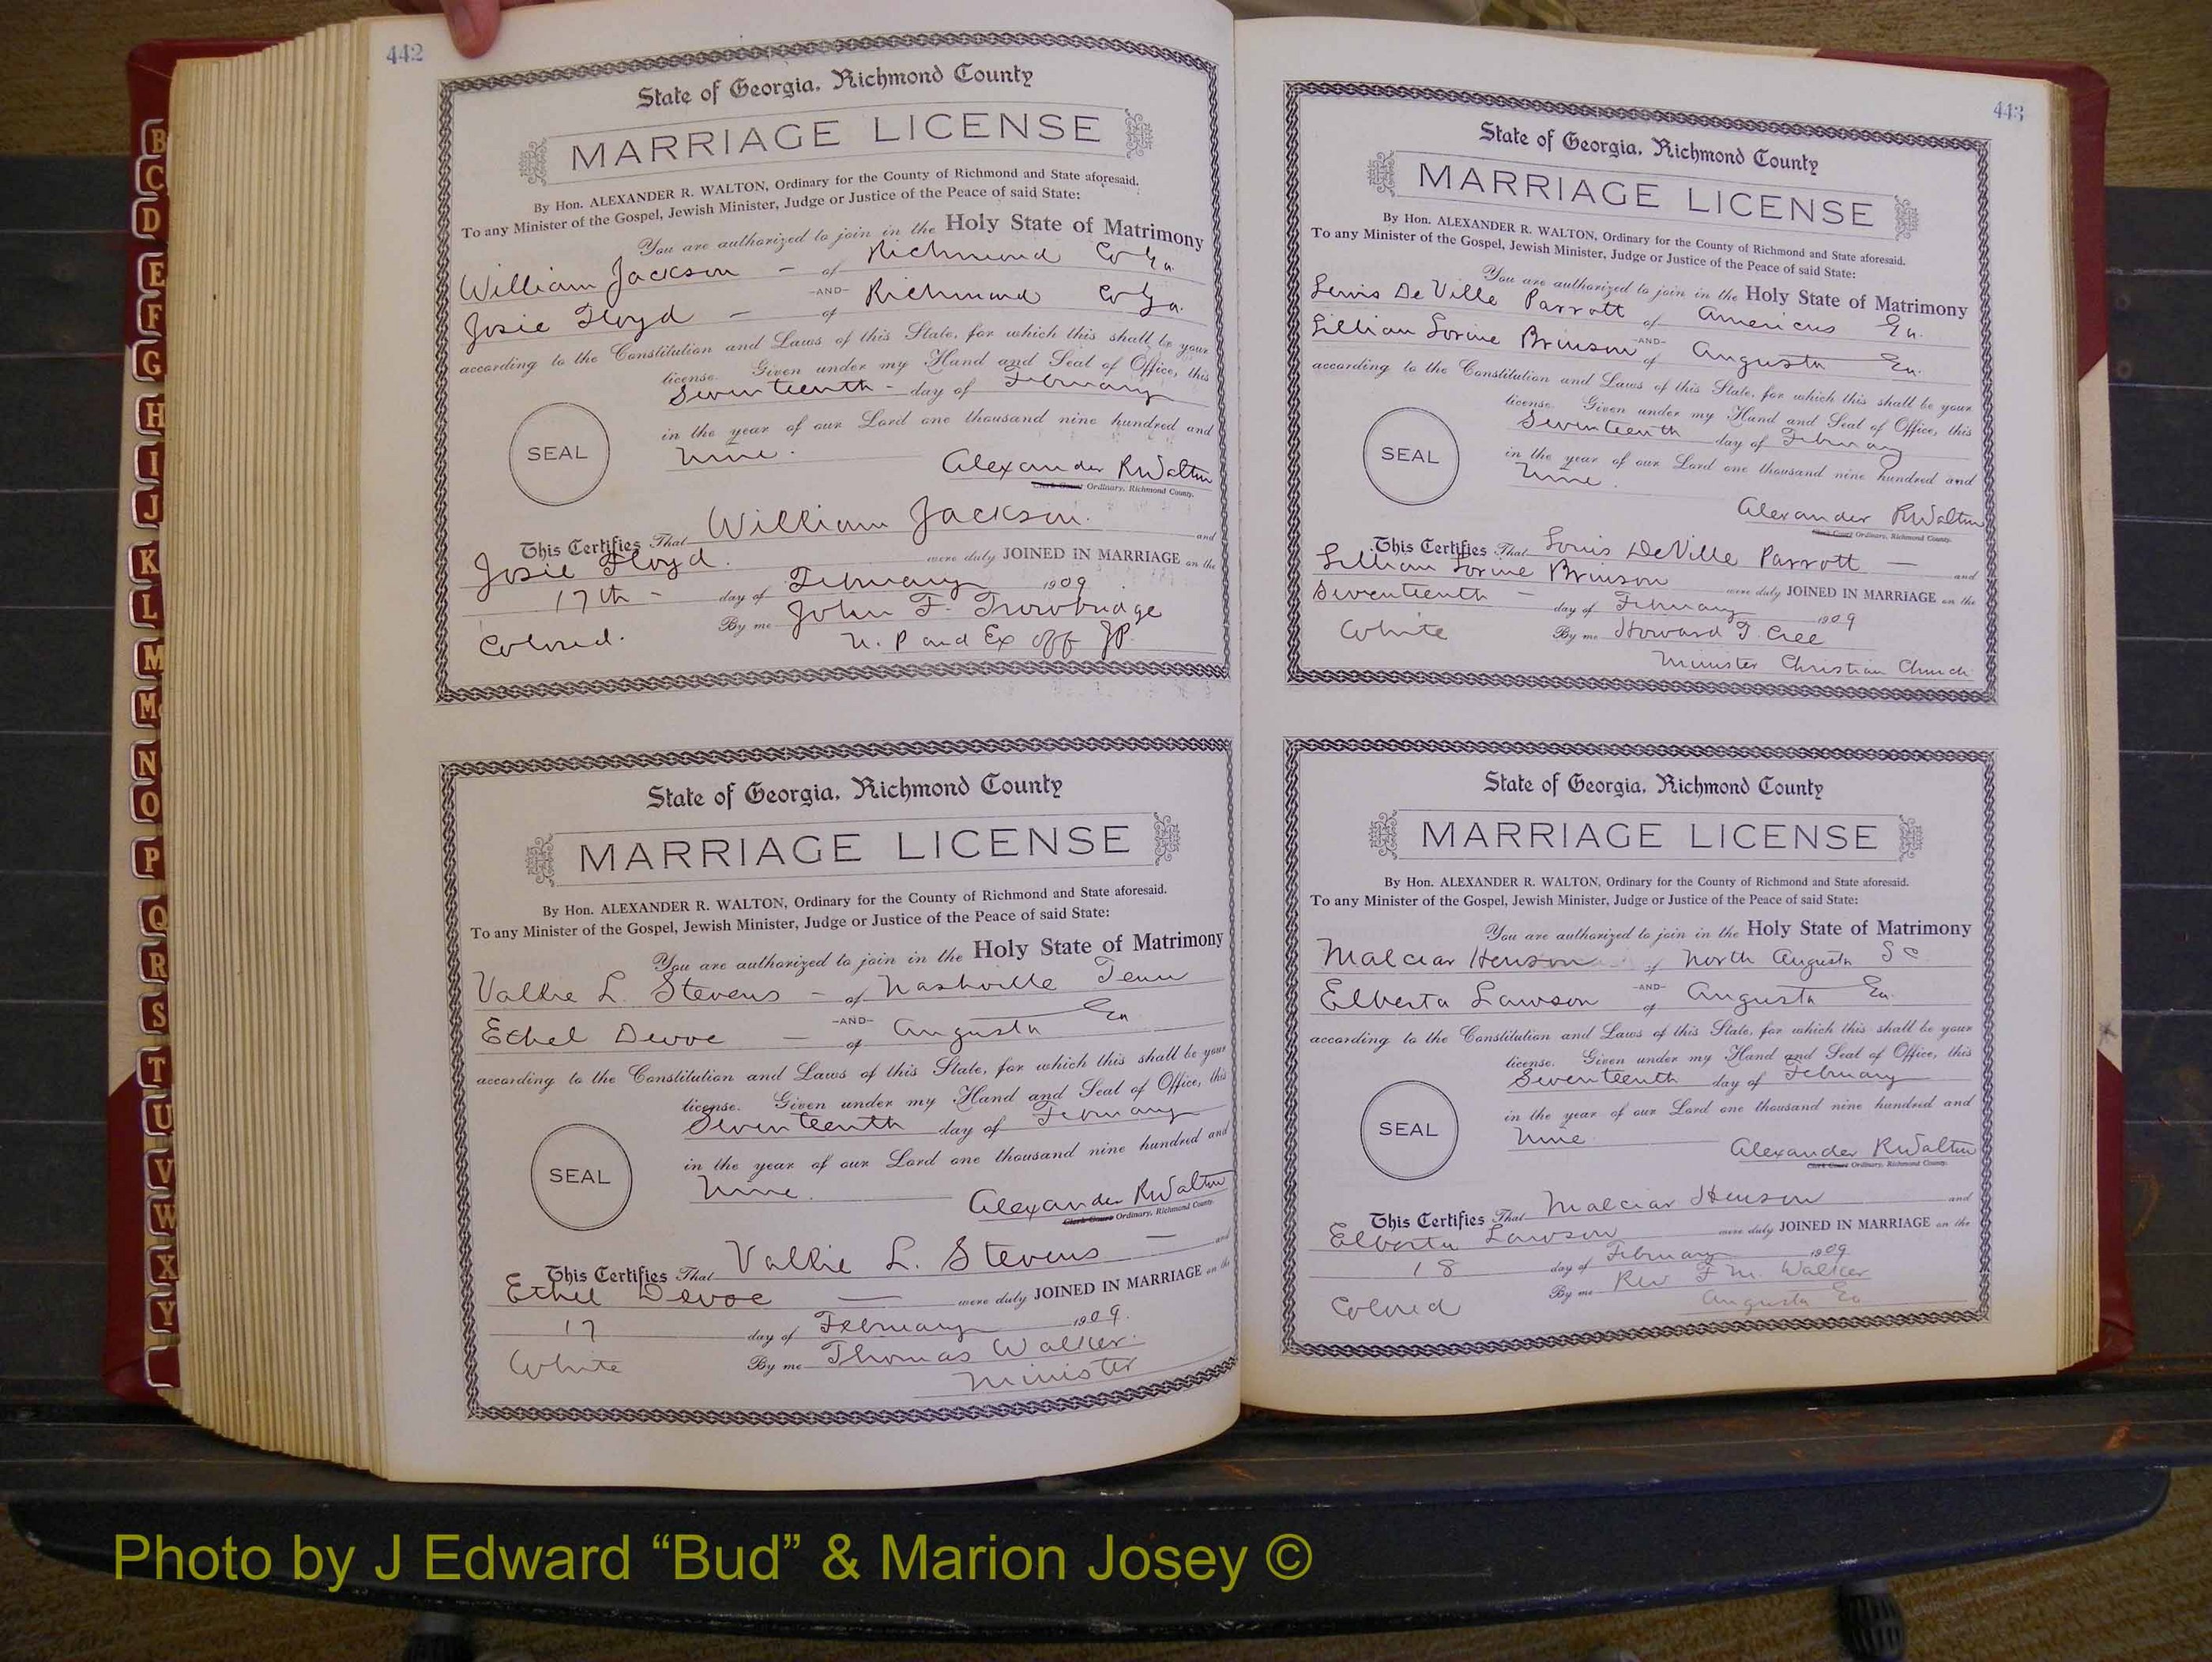 442
State of Georgia, Richmond County
MARRIAGE LICENSE
By Hon. ALEXANDER R. WALTON, Ordinary for the County of Richmond and State aforesaid.
To any Minister of the Gospel, Jewish Minister, Judge or Justice of the Peace of said State:
You are authorized to join in the Holy State of Matrimony
William Jackson - of Richmond Co Ga.
-AND-
Josie Floyd - of Richmond Co Ga.
according to the Constitution and Laws of this State, for which this shall be your
license. Given under my Hand and Seal of Office, this
Seventeenth - day of February
in the year of our Lord one thousand nine hundred and
SEAL
nine.
Alexander R Walton
Clerk Court Ordinary, Richmond County.
This Certifies That William Jackson. and
Josie Floyd. were duly JOINED IN MARRIAGE on the
17th - day of February 1909
By me John F. Trowbridge
Colored. N. P and Ex Off JP.
State of Georgia, Richmond County
MARRIAGE LICENSE
By Hon. ALEXANDER R. WALTON, Ordinary for the County of Richmond and State aforesaid.
To any Minister of the Gospel, Jewish Minister, Judge or Justice of the Peace of said State:
You are authorized to join in the Holy State of Matrimony
Vallie L. Stevens - of Nashville Tenn
-AND-
Ethel Devoe - of Augusta Ga
according to the Constitution and Laws of this State, for which this shall be your
license. Given under my Hand and Seal of Office, this
Seventeenth day of February
in the year of our Lord one thousand nine hundred and
SEAL
Nine.
Alexander R Walton
Clerk Court Ordinary, Richmond County.
This Certifies That Vallie L. Stevens - and
Ethel Devoe - were duly JOINED IN MARRIAGE on the
17 day of February 1909.
White By me Thomas Walker.
Minister
443
State of Georgia, Richmond County
MARRIAGE LICENSE
By Hon. ALEXANDER R. WALTON, Ordinary for the County of Richmond and State aforesaid.
To any Minister of the Gospel, Jewish Minister, Judge or Justice of the Peace of said State:
You are authorized to join in the Holy State of Matrimony
Lewis De Ville Parrott of Americus Ga.
-AND-
Lillian Lorine Brinson of Augusta Ga.
according to the Constitution and Laws of this State, for which this shall be your
license. Given under my Hand and Seal of Office, this
Seventeenth day of February
in the year of our Lord one thousand nine hundred and
SEAL
Nine.
Alexander R Walton
Clerk Court Ordinary, Richmond County.
This Certifies That Louis DeVille Parrott - and
Lillian Lorine Brinson were duly JOINED IN MARRIAGE on the
Seventeenth - day of February 1909
White By me Howard T. Cree
Minister Christian Church
State of Georgia, Richmond County
MARRIAGE LICENSE
By Hon. ALEXANDER R. WALTON, Ordinary for the County of Richmond and State aforesaid.
To any Minister of the Gospel, Jewish Minister, Judge or Justice of the Peace of said State:
You are authorized to join in the Holy State of Matrimony
Malciar Henson of North Augusta S C
-AND-
Elberta Lawson of Augusta Ga.
according to the Constitution and Laws of this State, for which this shall be your
license. Given under my Hand and Seal of Office, this
Seventeenth day of February
in the year of our Lord one thousand nine hundred and
SEAL
Nine
Alexander R Walton
Clerk Court Ordinary, Richmond County.
This Certifies That Malciar Henson and
Elberta Lawson were duly JOINED IN MARRIAGE on the
18 day of February 1909
By me Rev F. M. Walker
Colored Augusta Ga
B
C
D
E
F
G
H
I
J
K
L
M
Mc
N
O
P
Q
R
S
T
U
V
W
X
Y
Photo by J Edward “Bud” & Marion Josey ©